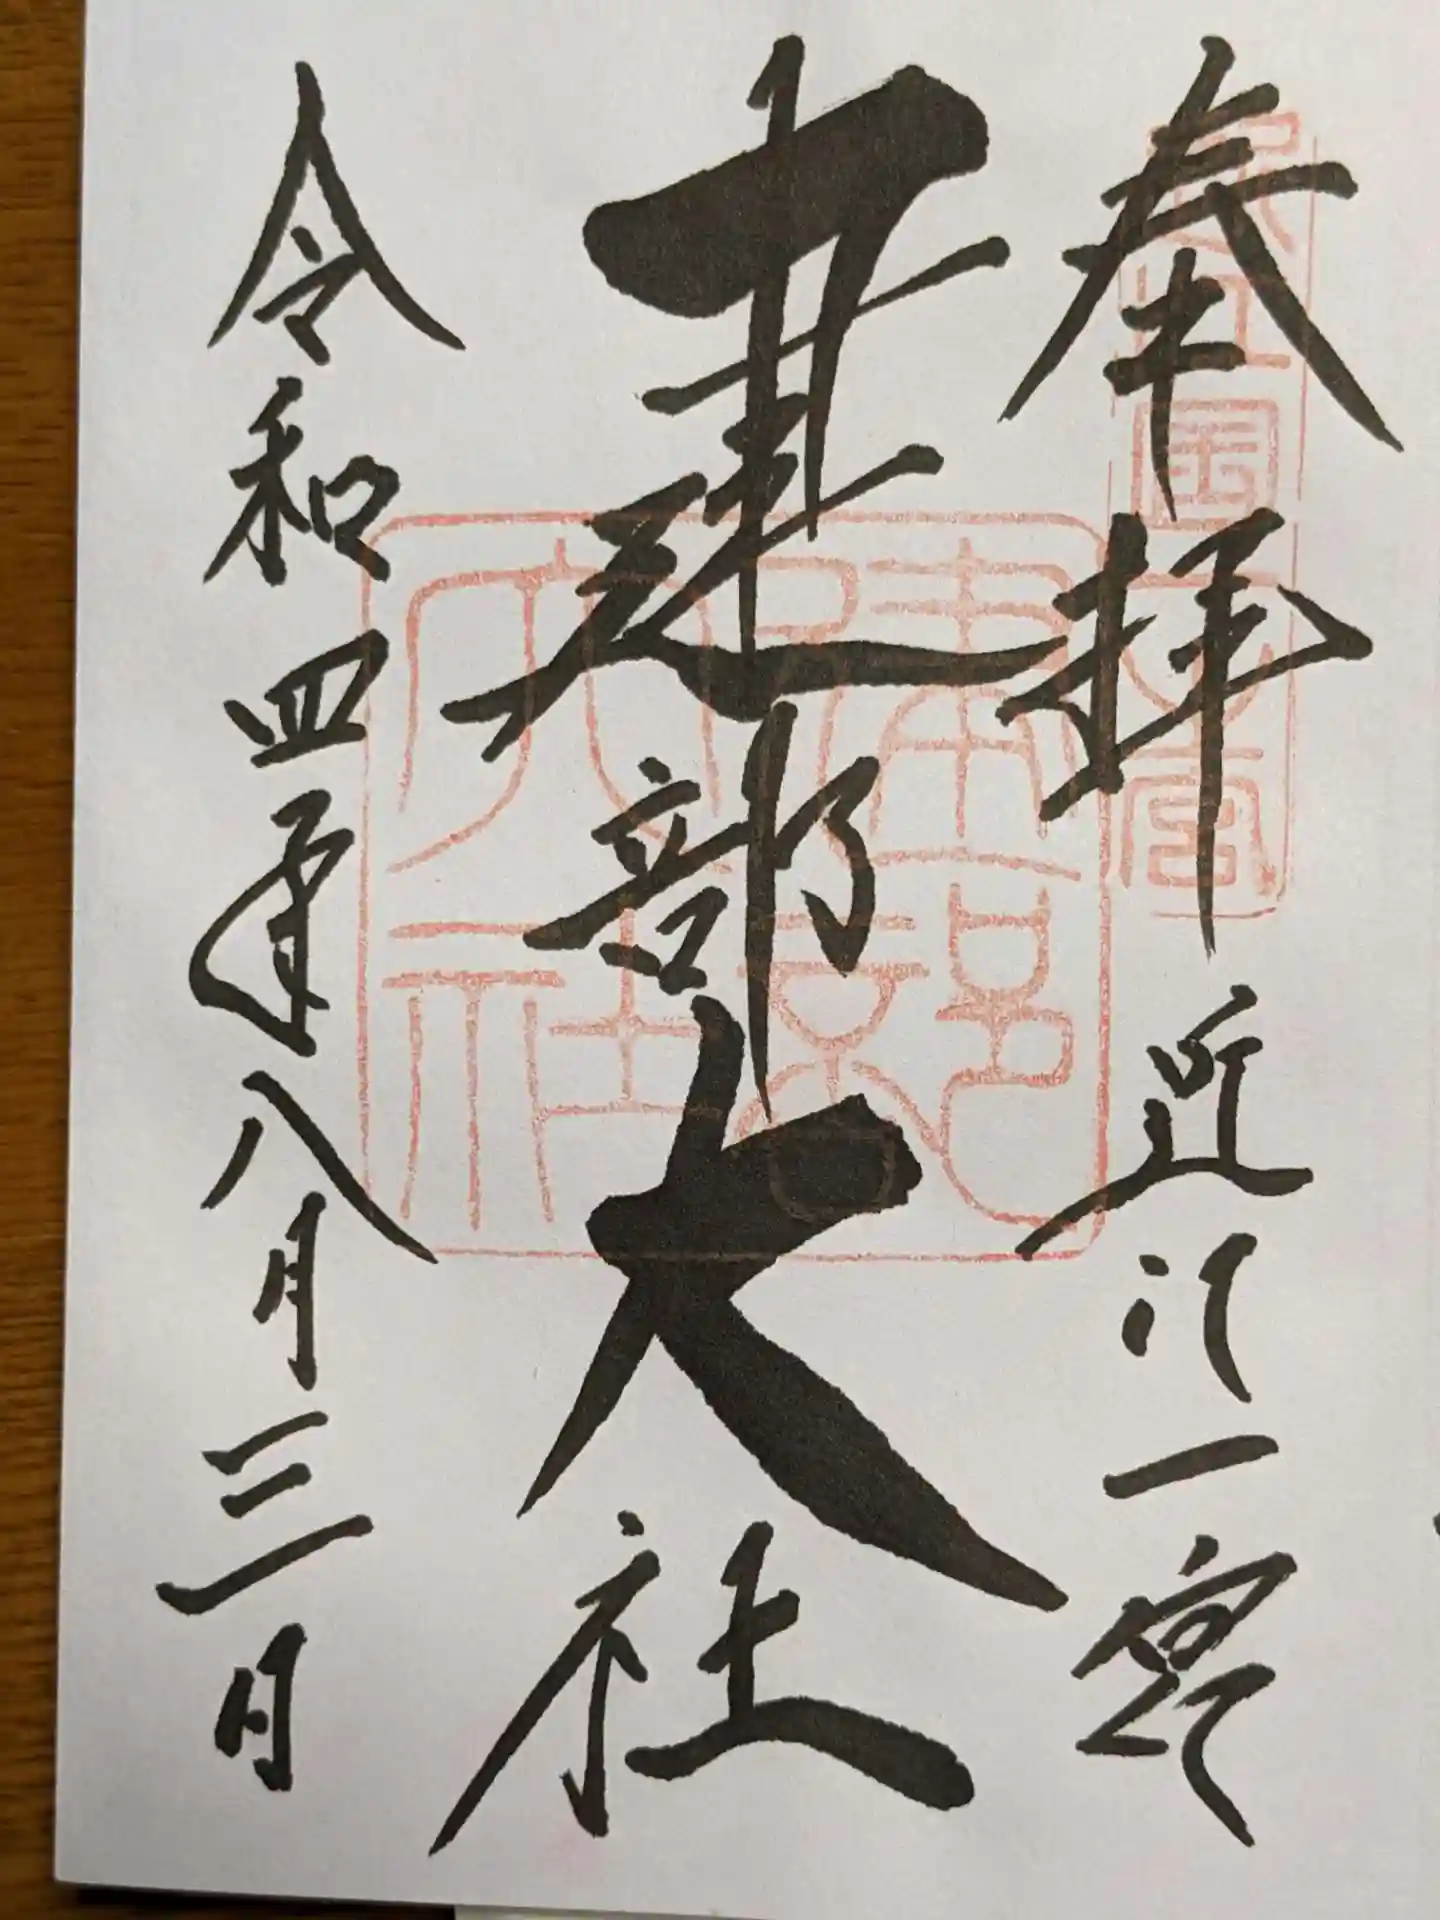 奉拝 近江一宮
建部大社
令和四年八月三日
近江国一之宮
建部大社